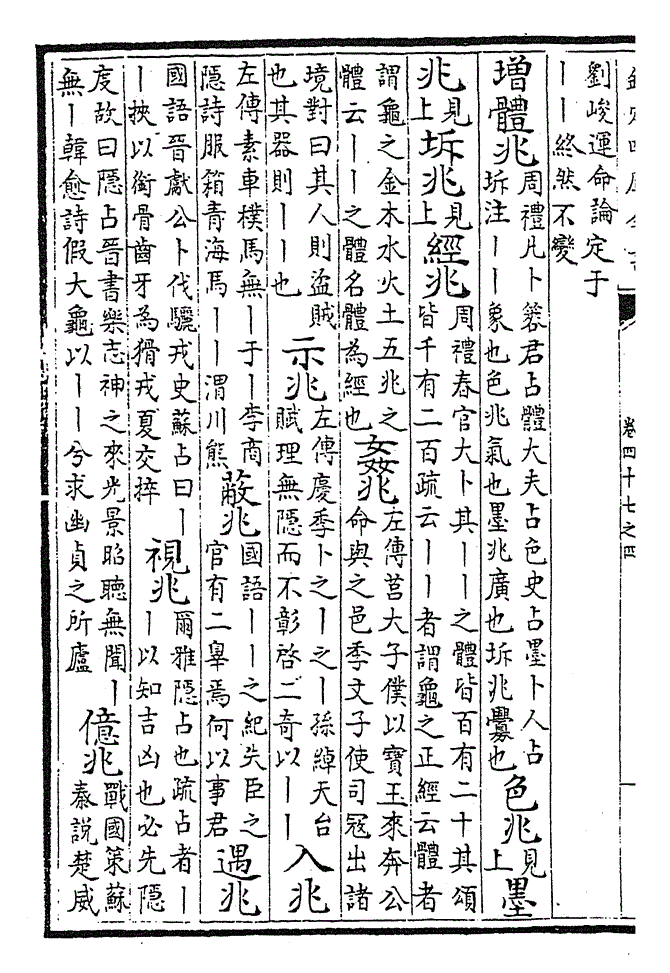 卷四十七之四
劉峻運命論定于
｜｜終然不變
增體兆
周禮凡卜簭君占體大夫占色史占墨卜人占
坼注｜｜象也色兆氣也墨兆廣也坼兆釁也
色兆
見
上
墨
兆
見
上
坼兆
見
上
經兆
周禮春官大卜其｜｜之體皆百有二十其頌
皆千有二百疏云｜｜者謂龜之正經云體者
謂龜之金木水火土五兆之
體云｜｜之體名體為經也
姦兆
左傳莒大子僕以寶玉來奔公
命與之邑季文子使司冦出諸
境對曰其人則盜賊
也其器則｜｜也
示兆
左傳慶季卜之｜之｜孫綽天台
賦理無隱而不彰啓二奇以｜｜
入兆
左傳素車樸馬無｜于｜李商
隱詩服箱青海馬｜｜渭川熊
蔽兆
國語｜｜之紀失臣之
官有二辠焉何以事君
遇兆
國語晉獻公卜伐驪戎史蘇占曰｜
｜挾以銜骨齒牙為猾戎夏交捽
視兆
爾雅隱占也疏占者｜
｜以知吉凶也必先隱
度故曰隱占晉書樂志神之來光景昭聽無聞｜
無｜韓愈詩假大龜以｜｜兮求幽貞之所廬
億兆
戰國策蘇
秦說楚威